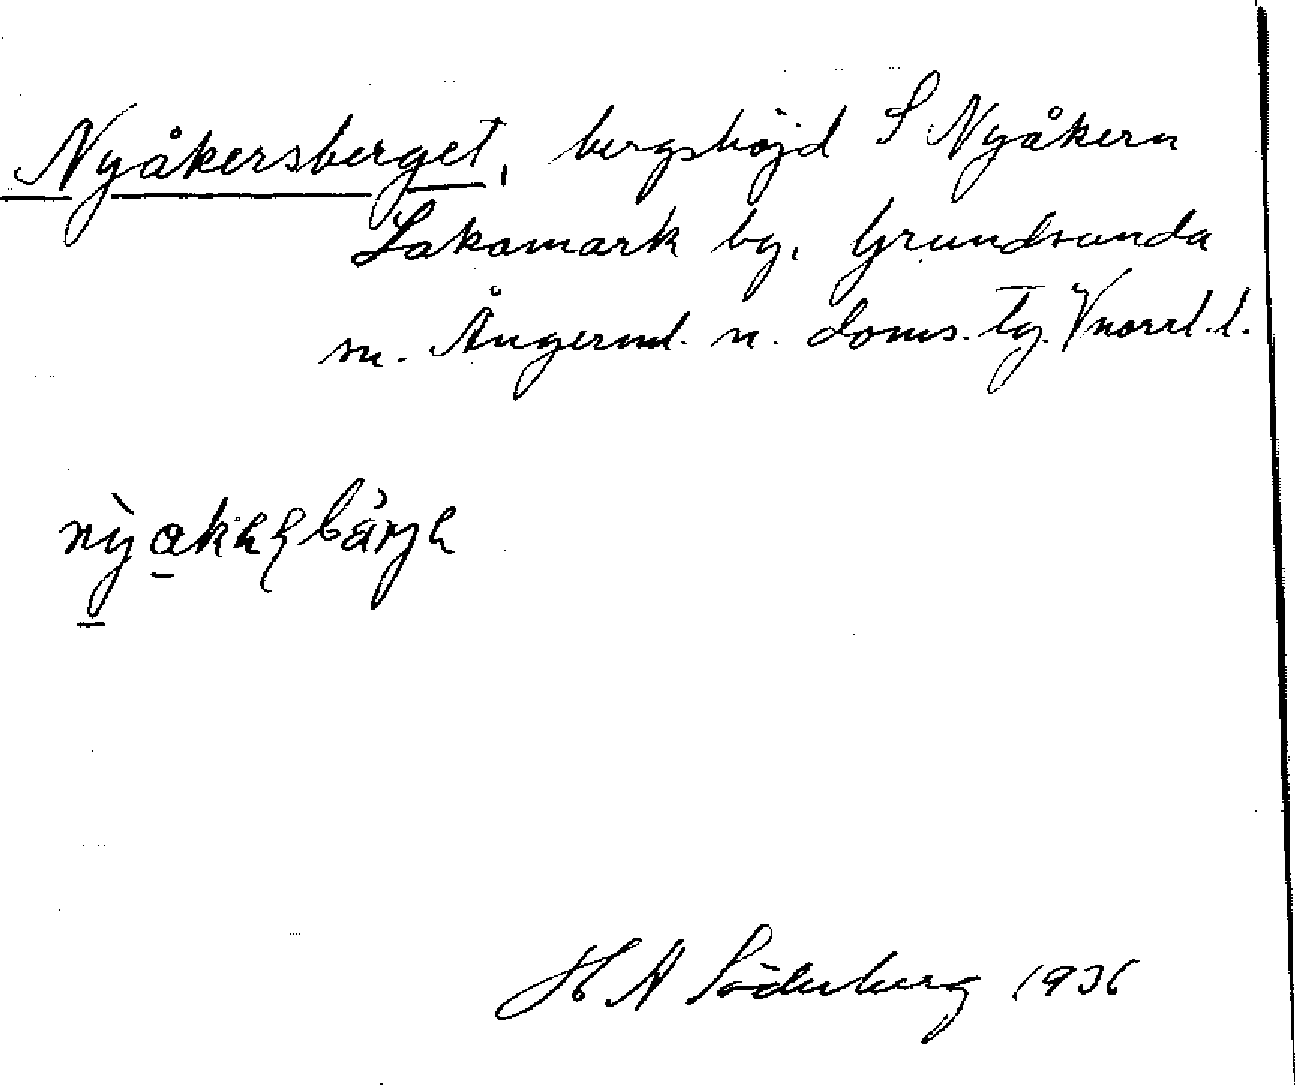 Nyåkersberget, bergshöjd S Nyåkern
Lakamark by, Grundsunda
sn. Ångerml. n. doms. tg. Vnorrl. l.
H A Söderberg 1936